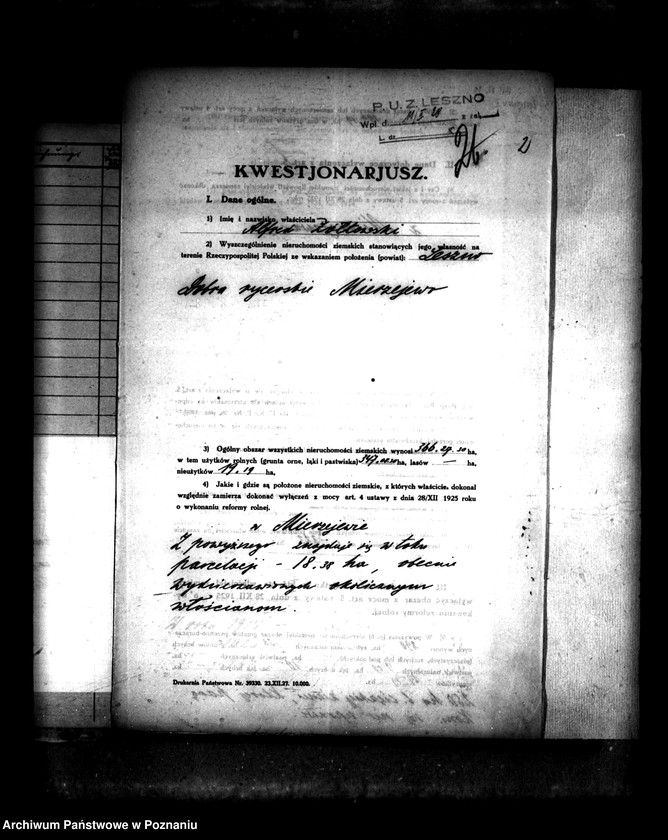 P. U. Z. LESZNO
Wpł. d. z zał.
L. dz.
2
KWESTJONARJUSZ.
I. Dane ogólne.
1) Imię i nazwisko właściciela
Alfred Żółtowski
2) Wyszczególnienie nieruchomości ziemskich stanowiących jego własność na
terenie Rzeczypospolitej Polskiej ze wskazaniem położenia (powiat): Leszno
Dobra rycerskie Mierzejewo
3) Ogólny obszar wszystkich nieruchomości ziemskich wynosi 366.27.30 ha,
w tem użytków rolnych (grunta orne, łąki i pastwiska) ha, lasów — ha,
nieużytków 19.19 ha,
4) Jakie i gdzie są położone nieruchomości ziemskie, z których właściciel dokonał
względnie zamierza dokonać wyłączeń z mocy art. 4 ustawy z dnia 28/XII 1925 roku
o wykonaniu reformy rolnej.
w Mierzejewie
Z powyższego znajduje się w toku
parcelacji - 18.38 ha, obecnie
wydzierżawionych okolicznym
włościanom.
Drukarnia Państwowa Nr. 39330. 23.XII.27. 10.000.
Archiwum Państwowe w Poznaniu